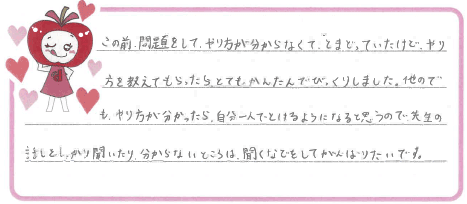 この前、問題をして、やり方が分からなくて、とまどっていたけど、やり
方を教えてもらったら、とてもかんたんでびっくりしました。他ので
も、やり方が分かったら、自分一人でとけるようになると思うので、先生の
話しをしっかり聞いたり、分からないところは、聞くなどをしてがんばりたいです。